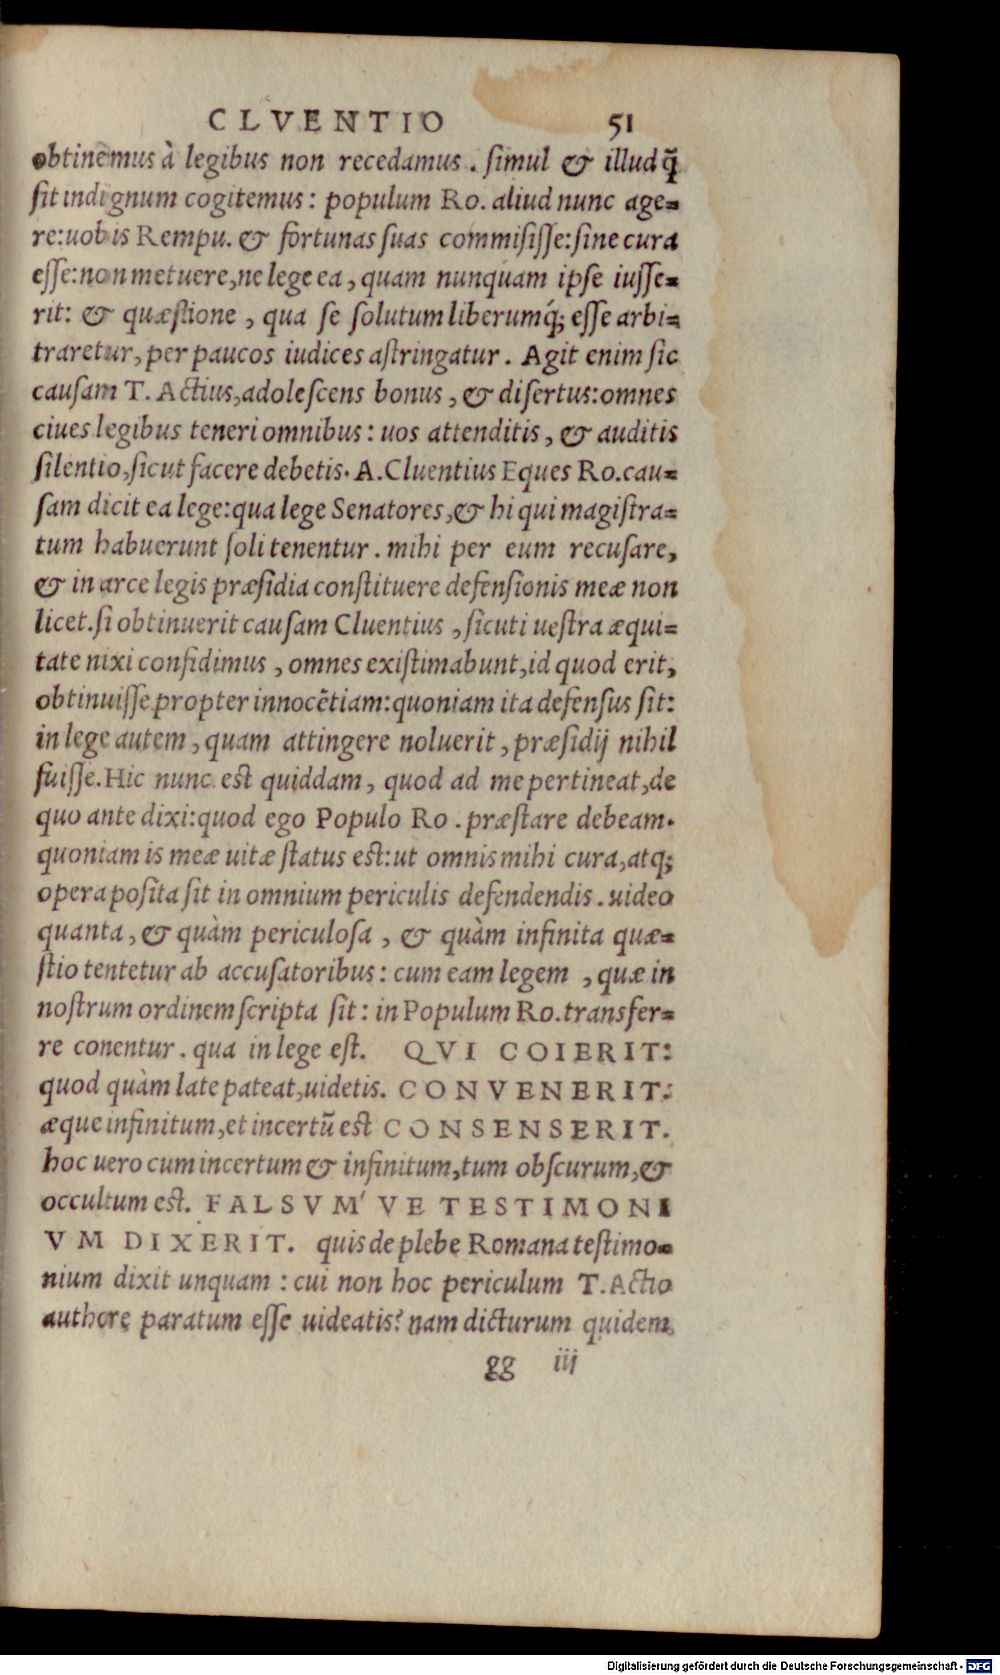 CLVENTIO 51
obtinemus à legibus non recedamus. simul & illud q̃
sit indignum cogitemus: populum Ro. aliud nunc age=
re: uobis Rempu. & fortunas suas commisisse: sine cura
esse: non metuere, ne lege ea, quam nunquam ipse iusse=
rit: & quæstione, qua se solutum liberumq́; esse arbi=
traretur, per paucos iudices astringatur. Agit enim sic
causam T. Actius, adolescens bonus, & disertus: omnes
ciues legibus teneri omnibus: uos attenditis, & auditis
silentio, sicut facere debetis. A. Cluentius Eques Ro. cau=
sam dicit ea lege: qua lege Senatores, & hi qui magistra=
tum habuerunt soli tenentur. mihi per eum recusare,
& in arce legis præsidia constituere defensionis meæ non
licet. si obtinuerit causam Cluentius, sicuti uestra æqui=
tate nixi confidimus, omnes existimabunt, id quod erit,
obtinuisse propter innocẽtiam: quoniam ita defensus sit:
in lege autem, quam attingere noluerit, præsidij nihil
fuisse. Hic nunc est quiddam, quod ad me pertineat, de
quo ante dixi: quod ego Populo Ro. præstare debeam.
quoniam is meæ uitæ status est: ut omnis mihi cura, atq;
opera posita sit in omnium periculis defendendis. uideo
quanta, & quàm periculosa, & quàm infinita quæ=
stio tentetur ab accusatoribus: cum eam legem, quæ in
nostrum ordinem scripta sit: in Populum Ro. transfer=
re conentur. qua in lege est. QVI COIERIT:
quod quàm late pateat, uidetis. CONVENERIT:
æque infinitum, et incertũ est CONSENSERIT.
hoc uero cum incertum & infinitum, tum obscurum, &
occultum est. FALSVM' VE TESTIMONI
VM DIXERIT. quis de plebe Romana testimo=
nium dixit unquam: cui non hoc periculum T. Actio
authore paratum esse uideatis? nam dicturum quidem
gg iij
Digitalisierung gefördert durch die Deutsche Forschungsgemeinschaft - DFG